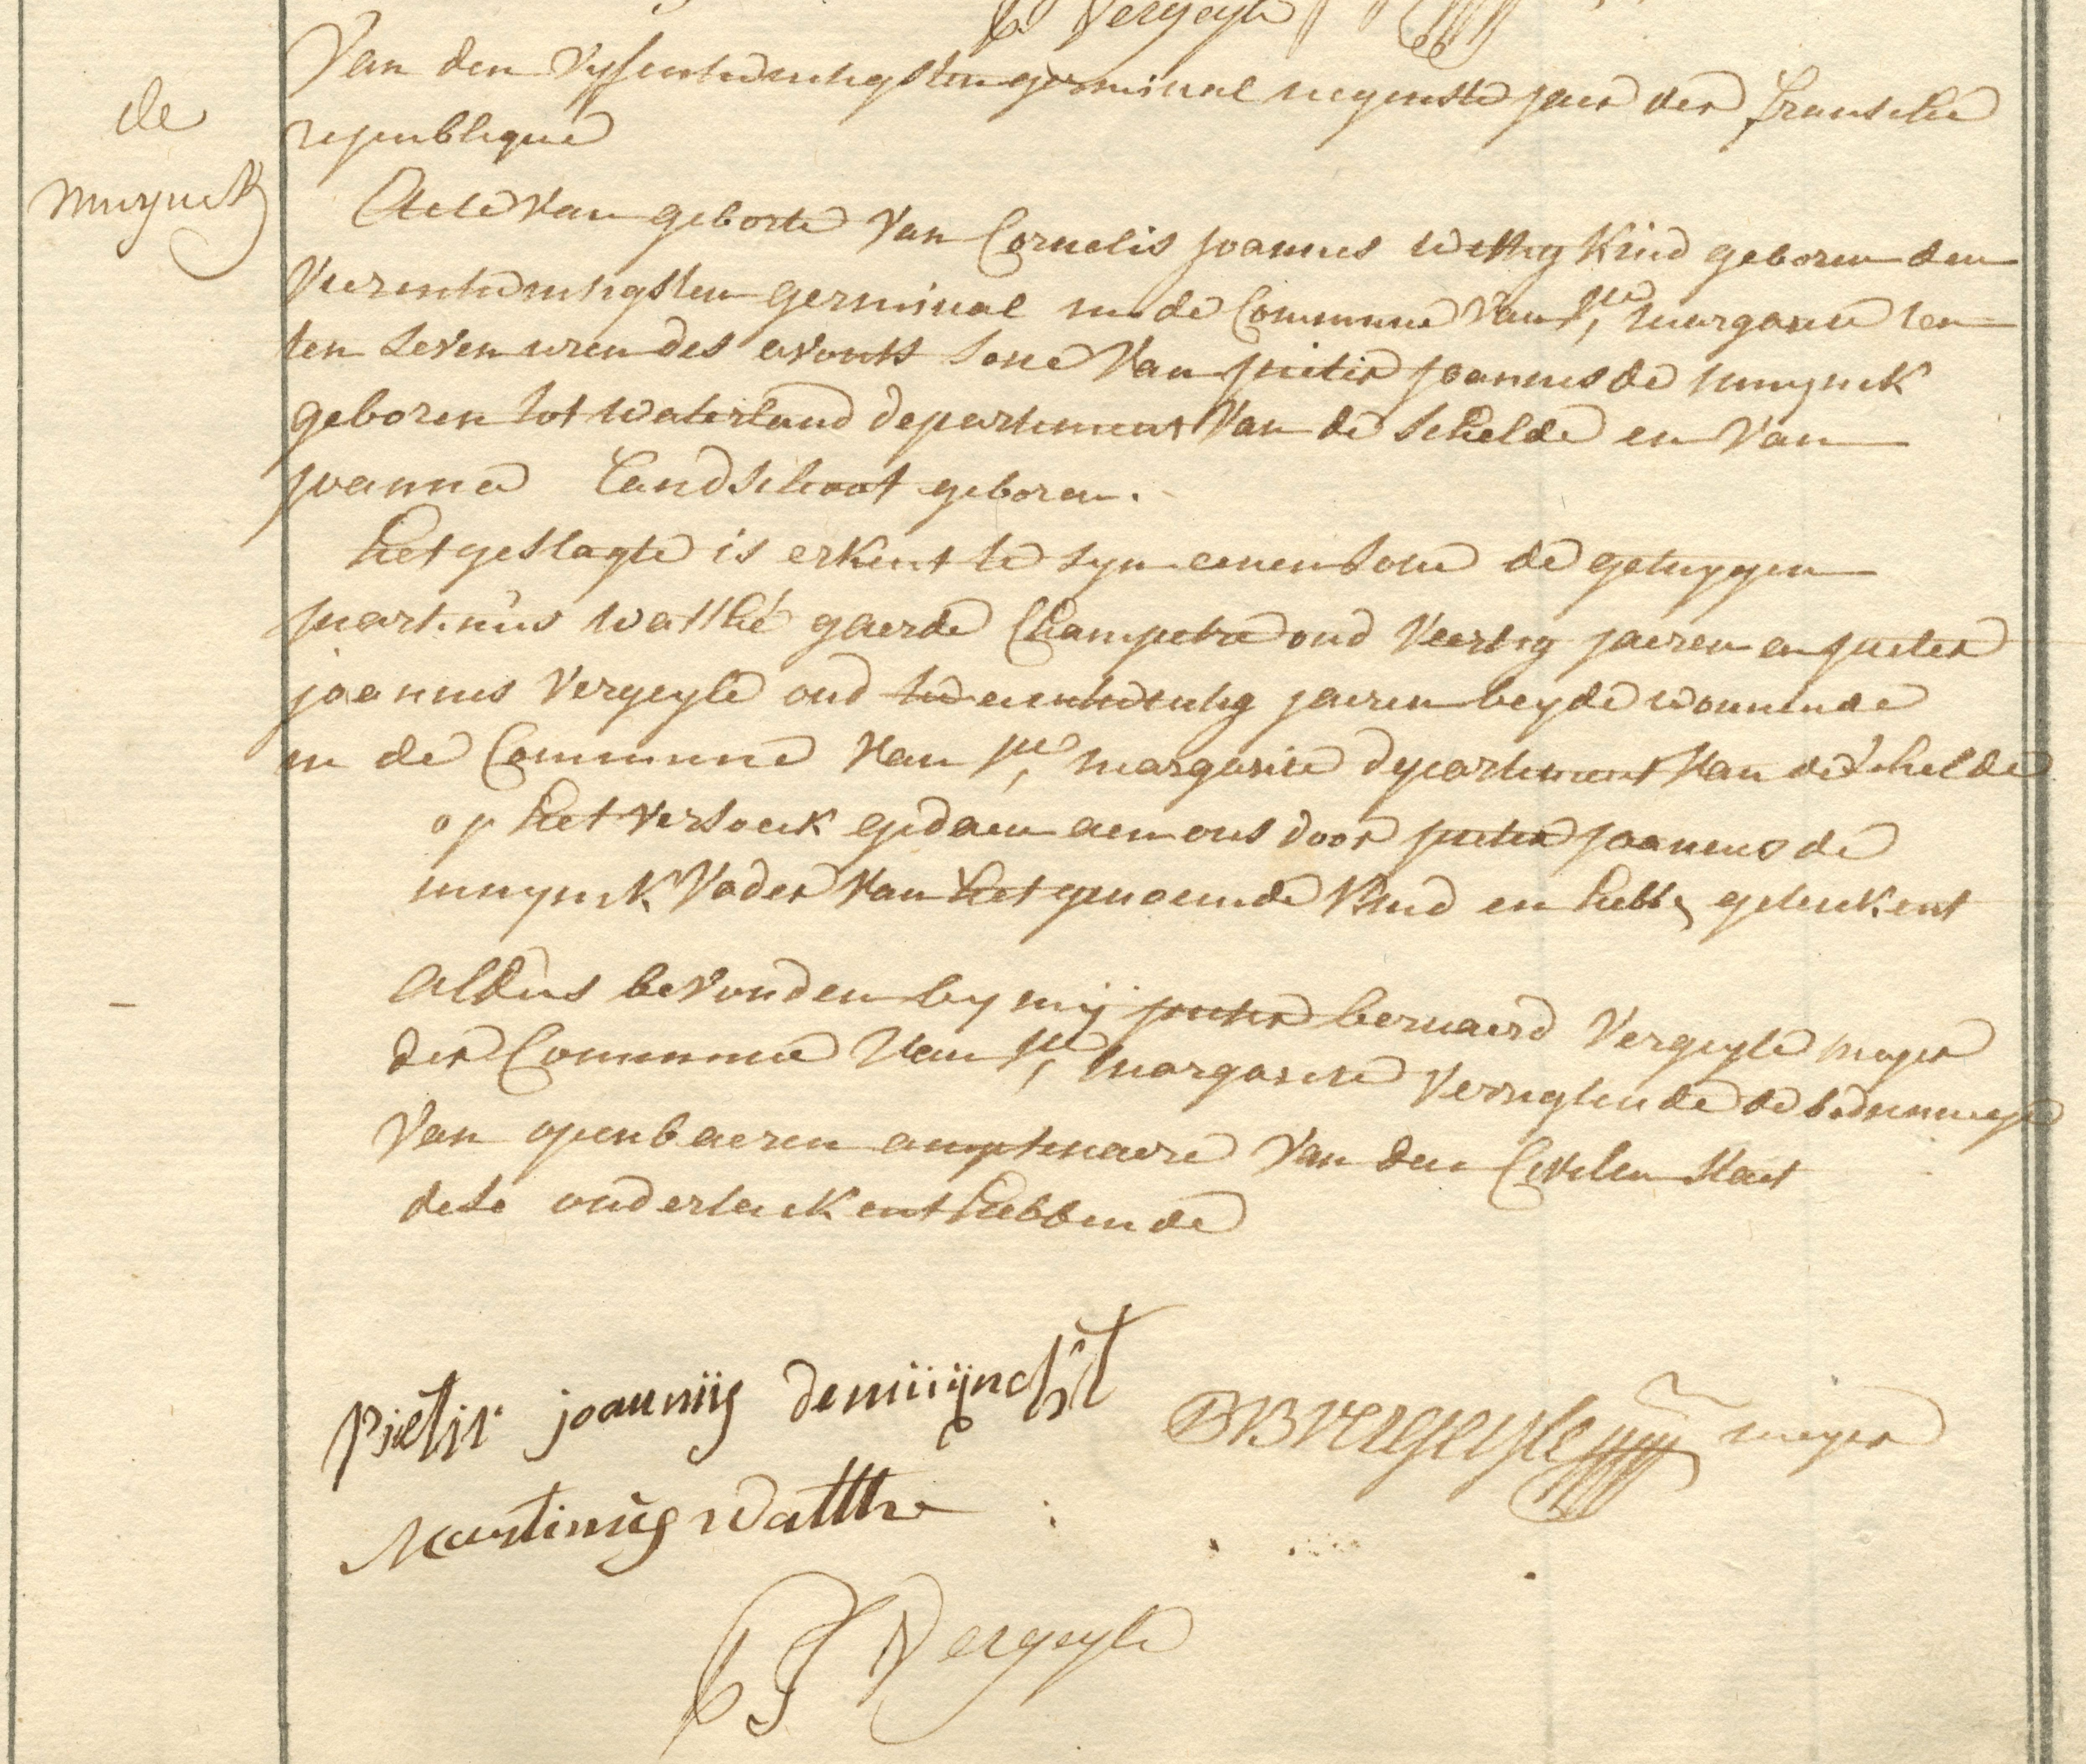 Vergeyle
Van den Vyfentwintigsten germinal negenste jaer der fransche
de
republique
muynck
Acte van geborte van Cornelis joannes wettig kind geboren den
vierentwintigsten germinal in de Commune van Ste margarite ten
ten seven uren des avonts sone van pieter joannes de muynck
geboren tot waterland departement van de schelde en van
joanna Landschoot geboren.
het geslagte is erkent te syn eenen sone de getuygen
martinus watthé gaerde Champetre oud veertig jaeren en pieter
joannes vergeyle oud tweeentwintig jaeren beyde woonende
in de Commune van Ste margarite departement van de schelde
op het versoeck gedaen aen ons door pieter joannes de
muynck vader van het genoemde kind en hebbe geteekent
aldus bevonden by mij pieter bernaerd Vergeyle meyer
der Commune van Ste margarite verrigtende de
van openbaeren amptenaere van den Civilen staet
dese onderteekent hebbende
Pieter joannis demuijnckt
PB Vergeyle meyer
Martinus watthe
PJ Vergeyle